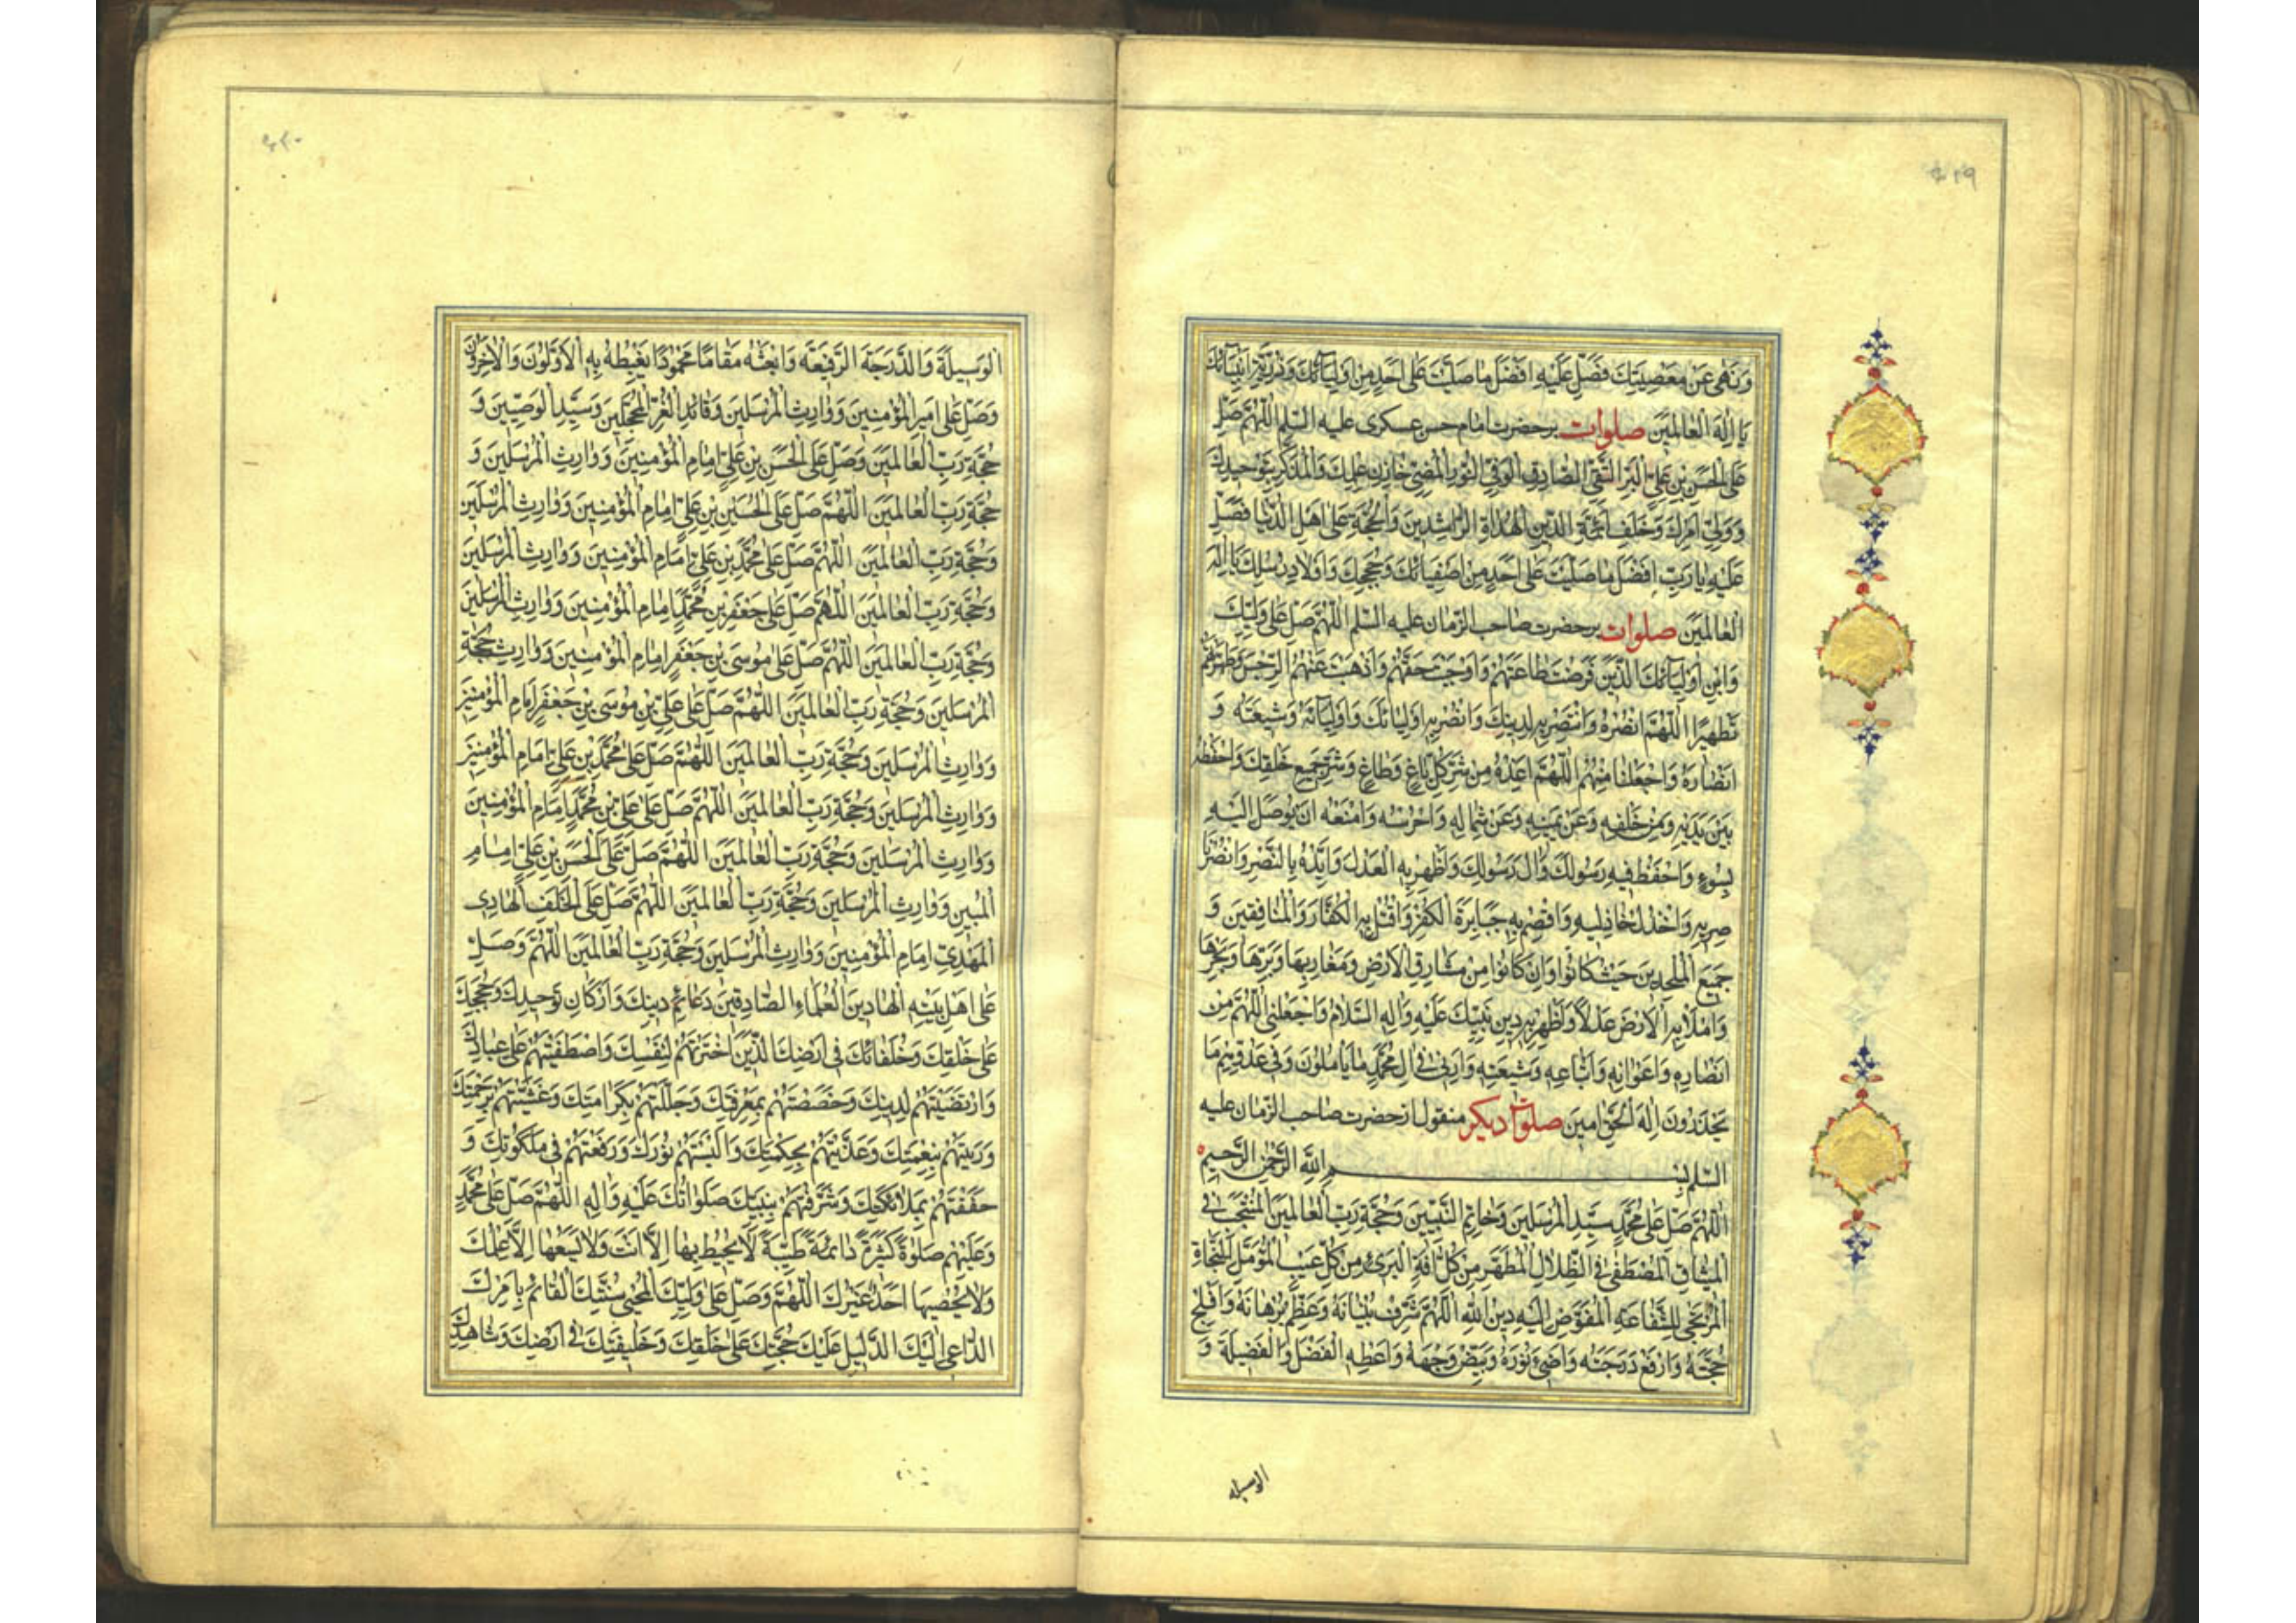 وَنَهٰى عَنْ مَعْصِيَتِكَ فَصَلِّ عَلَيْهِ اَفْضَلَ مَا صَلَّيْتَ عَلٰى اَحَدٍ مِنْ اَوْلِيَآئِكَ وَذُرِّيَّةِ اَنْبِيَآئِكَ
يَا اِلٰهَ الْعَالَمِيْنَ صلوات برحضرت امام حسن عسكرى عليه السّلم اَللّٰهُمَّ صَلِّ
عَلَى الْحَسَنِ بْنِ عَلِيٍّ الْبَرِّ التَّقِيِّ الصَّادِقِ الْوَفِيِّ النُّورِ الْمُضِيْءِ خَازِنِ عِلْمِكَ وَالْمُذَكِّرِ بِتَوْحِيدِكَ
وَوَلِيِّ اَمْرِكَ وَخَلَفِ اَئِمَّةِ الدّينِ الْهُدَاةِ الرَّاشِدينَ وَالْحُجَّةِ عَلٰى اَهْلِ الدُّنْيَا فَصَلِّ
عَلَيْهِ يَا رَبِّ اَفْضَلَ مَا صَلَّيْتَ عَلٰى اَحَدٍ مِنْ اَصْفِيَائِكَ وَحُجَجِكَ وَاَوْلَادِ رُسُلِكَ يَا اِلٰهَ
الْعَالَمِيْنَ صلوات برحضرت صاحب الزّمان عليه السّلم اَللّٰهُمَّ صَلِّ عَلٰى وَلِيِّكَ
وَابْنِ اَوْلِيَآئِكَ الَّذينَ فَرَضْتَ طَاعَتَهُمْ وَاَوْجَبْتَ حَقَّهُمْ وَاَذْهَبْتَ عَنْهُمُ الرِّجْسَ وَطَهَّرْتَهُمْ
تَطْهِيرًا اَللّٰهُمَّ انْصُرْهُ وَانْتَصِرْ بِهِ لِدينِكَ وَانْصُرْ بِهِ اَوْلِيَائَكَ وَاَوْلِيَآئَهُ وَشِيعَتَهُ وَ
اَنْصَارَهُ وَاجْعَلْنَا مِنْهُمْ اَللّٰهُمَّ اَعِذْهُ مِنْ شَرِّ كُلِّ بَاغٍ وَطَاغٍ وَشَرِّ جَميعِ خَلْقِكَ وَاحْفَظْهُ
بَيْنَ يَدَيْهِ وَمِنْ خَلْفِهِ وَعَنْ يَمينِهِ وَعَنْ شِمَالِهِ وَاحْرُسْهُ وَامْنَعْهُ اَنْ يُوصَلَ اِلَيْهِ
بِسُوءٍ وَاحْفَظْ فيهِ رَسُولَكَ وَاٰلَ رَسُولِكَ وَاَظْهِرْ بِهِ الْعَدْلَ وَاَيِّدْهُ بِالنَّصْرِ وَانْصُرْ نَا
صِرِيهِ وَاخْذُلْ خَاذِلِيهِ وَاقْصِمْ بِهِ جَبَابِرَةَ الْكُفْرِ وَاقْتُلْ بِهِ الْكُفَّارَ وَالْمُنَافِقينَ وَ
جَميعَ الْمُلْحِدينَ حَيْثُ كَانُوا وَاِنْ كَانُوا مِنْ مَشَارِقِ الْاَرْضِ وَمَغَارِبِهَا وَبَرِّهَا وَبَحْرِهَا
وَامْلَأْ بِهِ الْاَرْضَ عَدْلًا وَاَظْهِرْ بِهِ دينَ نَبِيِّكَ عَلَيْهِ وَاٰلِهِ السَّلَامُ وَاجْعَلْنِي اللّٰهُمَّ مِنْ
اَنْصَارِهِ وَاَعْوَانِهِ وَاَتْبَاعِهِ وَشِيعَتِهِ وَاَرِنِي فِي اٰلِ مُحَمَّدٍ مَا يَأْمُلُونَ وَفِي عَدُوِّهِمْ مَا
يَحْذَرُونَ اِلٰهَ الْحَقِّ اٰمينَ صلوات ديكر منقول از حضرت صاحب الزّمان عليه
السّلم بِسْمِ اللّٰهِ الرَّحْمٰنِ الرَّحيمِ
اَللّٰهُمَّ صَلِّ عَلٰى مُحَمَّدٍ سَيِّدِ الْمُرْسَلينَ وَخَاتِمِ النَّبِيّينَ وَحُجَّةِ رَبِّ الْعَالَمينَ الْمُنْتَجَبِ فِي
الْمِيثَاقِ الْمُصْطَفٰى فِي الظِّلَالِ الْمُطَهَّرِ مِنْ كُلِّ اٰفَةٍ الْبَرِيءِ مِنْ كُلِّ عَيْبٍ الْمُؤَمَّلِ لِلنَّجَاةِ
الْمُرْتَجٰى لِلشَّفَاعَةِ الْمُفَوَّضِ اِلَيْهِ دينُ اللّٰهِ اَللّٰهُمَّ شَرِّفْ بُنْيَانَهُ وَعَظِّمْ بُرْهَانَهُ وَاَفْلِجْ
حُجَّتَهُ وَارْفَعْ دَرَجَتَهُ وَاَضِئْ نُورَهُ وَبَيِّضْ وَجْهَهُ وَاَعْطِهِ الْفَضْلَ وَالْفَضيلَةَ وَ
الوسيله
اَلْوَسيلَةَ وَالدَّرَجَةَ الرَّفيعَةَ وَابْعَثْهُ مَقَامًا مَحْمُودًا يَغْبِطُهُ بِهِ الْاَوَّلُونَ وَالْاٰخِرُونَ
وَصَلِّ عَلٰى اَميرِ الْمُؤْمِنينَ وَوَارِثِ الْمُرْسَلينَ وَقَائِدِ الْغُرِّ الْمُحَجَّلينَ وَسَيِّدِ الْوَصِيّينَ وَ
حُجَّةِ رَبِّ الْعَالَمينَ وَصَلِّ عَلَى الْحَسَنِ بْنِ عَلِيٍّ اِمَامِ الْمُؤْمِنينَ وَوَارِثِ الْمُرْسَلينَ وَ
حُجَّةِ رَبِّ الْعَالَمينَ اَللّٰهُمَّ صَلِّ عَلَى الْحُسَيْنِ بْنِ عَلِيٍّ اِمَامِ الْمُؤْمِنينَ وَوَارِثِ الْمُرْسَلينَ
وَحُجَّةِ رَبِّ الْعَالَمينَ اَللّٰهُمَّ صَلِّ عَلٰى مُحَمَّدِ بْنِ عَلِيٍّ اِمَامِ الْمُؤْمِنينَ وَوَارِثِ الْمُرْسَلينَ
وَحُجَّةِ رَبِّ الْعَالَمينَ اَللّٰهُمَّ صَلِّ عَلٰى جَعْفَرِ بْنِ مُحَمَّدٍ اِمَامِ الْمُؤْمِنينَ وَوَارِثِ الْمُرْسَلينَ
وَحُجَّةِ رَبِّ الْعَالَمينَ اَللّٰهُمَّ صَلِّ عَلٰى مُوسَى بْنِ جَعْفَرٍ اِمَامِ الْمُؤْمِنينَ وَوَارِثِ حُجَّةِ
الْمُرْسَلينَ وَحُجَّةِ رَبِّ الْعَالَمينَ اَللّٰهُمَّ صَلِّ عَلٰى عَلِيِّ بْنِ مُوسَى بْنِ جَعْفَرٍ اِمَامِ الْمُؤْمِنينَ
وَوَارِثِ الْمُرْسَلينَ وَحُجَّةِ رَبِّ الْعَالَمينَ اَللّٰهُمَّ صَلِّ عَلٰى مُحَمَّدِ بْنِ عَلِيٍّ اِمَامِ الْمُؤْمِنينَ
وَوَارِثِ الْمُرْسَلينَ وَحُجَّةِ رَبِّ الْعَالَمينَ اَللّٰهُمَّ صَلِّ عَلٰى عَلِيِّ بْنِ مُحَمَّدٍ اِمَامِ الْمُؤْمِنينَ
وَوَارِثِ الْمُرْسَلينَ وَحُجَّةِ رَبِّ الْعَالَمينَ اَللّٰهُمَّ صَلِّ عَلَى الْحَسَنِ بْنِ عَلِيٍّ اِمَامِ
الْمُبينِ وَوَارِثِ الْمُرْسَلينَ وَحُجَّةِ رَبِّ الْعَالَمينَ اَللّٰهُمَّ صَلِّ عَلَى الْخَلَفِ الْهَادِي
الْمَهْدِيِّ اِمَامِ الْمُؤْمِنينَ وَوَارِثِ الْمُرْسَلينَ وَحُجَّةِ رَبِّ الْعَالَمينَ اَللّٰهُمَّ وَصَلِّ
عَلٰى اَهْلِ بَيْتِهِ الْهَادينَ الْعُلَمَاءِ الصَّادِقينَ دَعَائِمِ دينِكَ وَاَرْكَانِ تَوْحيدِكَ وَحُجَجِكَ
عَلٰى خَلْقِكَ وَخُلَفَائِكَ فِي اَرْضِكَ الَّذينَ اخْتَرْتَهُمْ لِنَفْسِكَ وَاصْطَفَيْتَهُمْ عَلٰى عِبَادِكَ
وَارْتَضَيْتَهُمْ لِدينِكَ وَخَصَصْتَهُمْ بِمَعْرِفَتِكَ وَجَلَّلْتَهُمْ بِكَرَامَتِكَ وَغَشَّيْتَهُمْ بِرَحْمَتِكَ
وَرَبَّيْتَهُمْ بِنِعْمَتِكَ وَغَذَّيْتَهُمْ بِحِكْمَتِكَ وَاَلْبَسْتَهُمْ نُورَكَ وَرَفَعْتَهُمْ فِي مَلَكُوتِكَ وَ
حَفَفْتَهُمْ بِمَلَائِكَتِكَ وَشَرَّفْتَهُمْ بِنَبِيِّكَ صَلَوَاتُكَ عَلَيْهِ وَاٰلِهِ اَللّٰهُمَّ صَلِّ عَلٰى مُحَمَّدٍ
وَعَلَيْهِمْ صَلٰوةً كَثيرَةً دَائِمَةً طَيِّبَةً لَا يُحيطُ بِهَا اِلَّا اَنْتَ وَلَا يَسَعُهَا اِلَّا عِلْمُكَ
وَلَا يُحْصيهَا اَحَدٌ غَيْرُكَ اَللّٰهُمَّ وَصَلِّ عَلٰى وَلِيِّكَ الْمُحْيِي سُنَّتَكَ الْقَائِمِ بِاَمْرِكَ
الدَّاعِي اِلَيْكَ الدَّليلِ عَلَيْكَ حُجَّتِكَ عَلٰى خَلْقِكَ وَخَليفَتِكَ فِي اَرْضِكَ وَشَاهِدِكَ